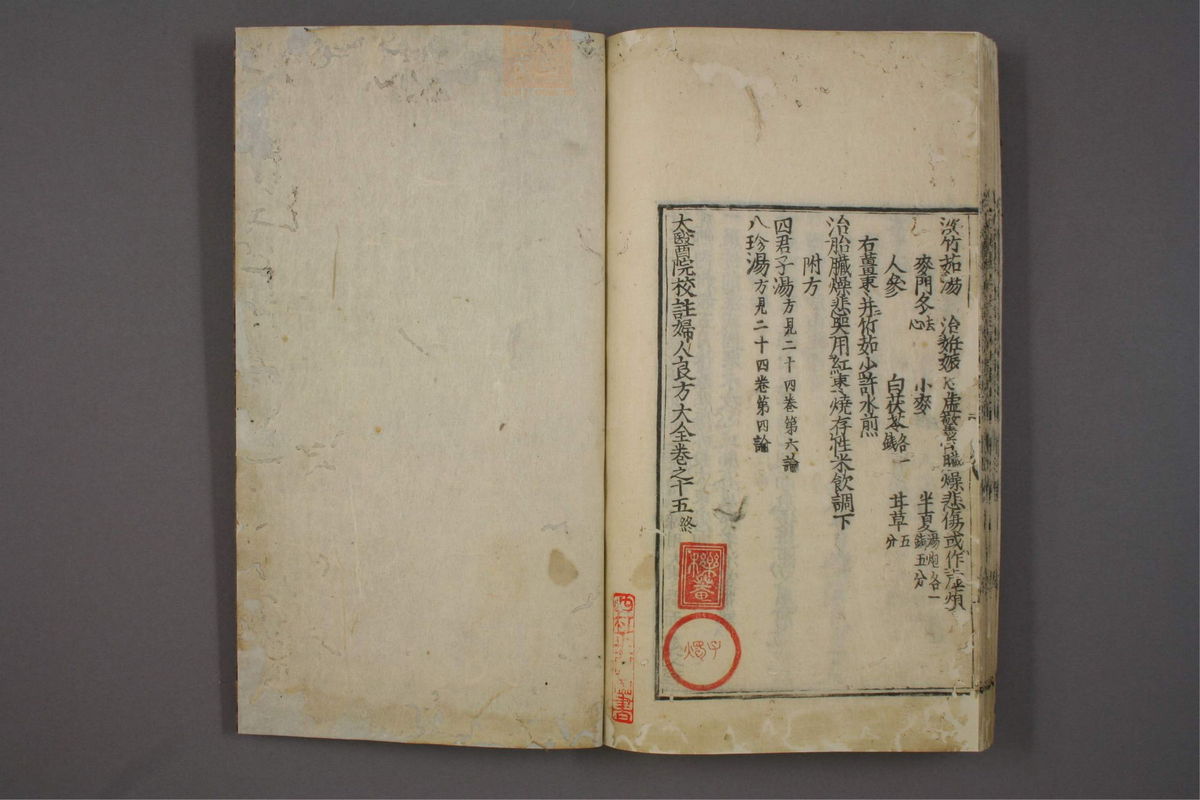 淡竹茹湯 治妊娠心虛驚悸臟燥悲傷或作虛煩
麥門冬去心 小麥 半夏湯炮各一錢五分
人參 白茯苓各一錢 甘草五分
右薑棗并竹茹少許水煎
治胎臟燥悲哭用紅棗燒存性米飲調下
附方
四君子湯方見二十四卷第六論
八珍湯方見二十四卷第四論
太醫院校註婦人良方大全卷之十五終